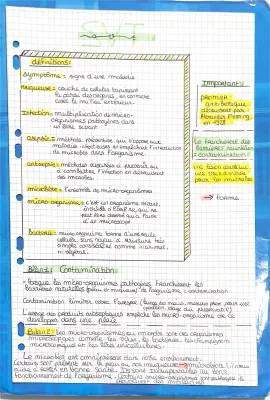 définitions:
Symptôme: signe d'une maladie
Muqueuse: couche de cellules tapissant
la paroi des organes, en contact
avec le milieu extérieur.
Infection: multiplication de micro-
organismes pathogènes dans
un être vivant
asepsie: méthode préventive, qui s'oppose aux
maladies infectieuses en empêchant l'introduction
de microbes dans l'organisme.
antisepsie: méthode destinée à prévenir ou
à combattre l'infection en détruisant
des microbes
microbiote: l'ensemble de micro-organismes
micro-organisme: c'est un organisme vivant,
invisible à l'œil nu, qui ne
peut être observé qu'à l'aide
d'un microscope
bactérie: micro-organisme formé d'une seule
cellule, sans noyau à structure très
simple considérée comme ni animal,
ni végétal.
Important:
PREMIER
antibiotique
découvert par
Alexander Fleming
en 1928
Le franchissement des
barrières naturelles
= contamination
pour les microbes
→ forme
Bilan 1: Contamination
- lorsque les micro-organismes pathogènes franchissent les
barrières naturelles (peau, muqueuse) de l'organisme: contamination
Contamination limitée grâce à l'asepsie
développer dans une plaie
Bilan 2: Les micro-organismes ou microbes sont des organismes
microscopiques comme les virus, les bactéries, les champignons
microscopiques
Le microbes est omniprésents dans notre environnement.
Certains sont présent sur la peau ou nos muqueuses → microbiote
aide à rester en bonne santé. Ils sont indispensables au bon
fonctionnement de l'organisme.